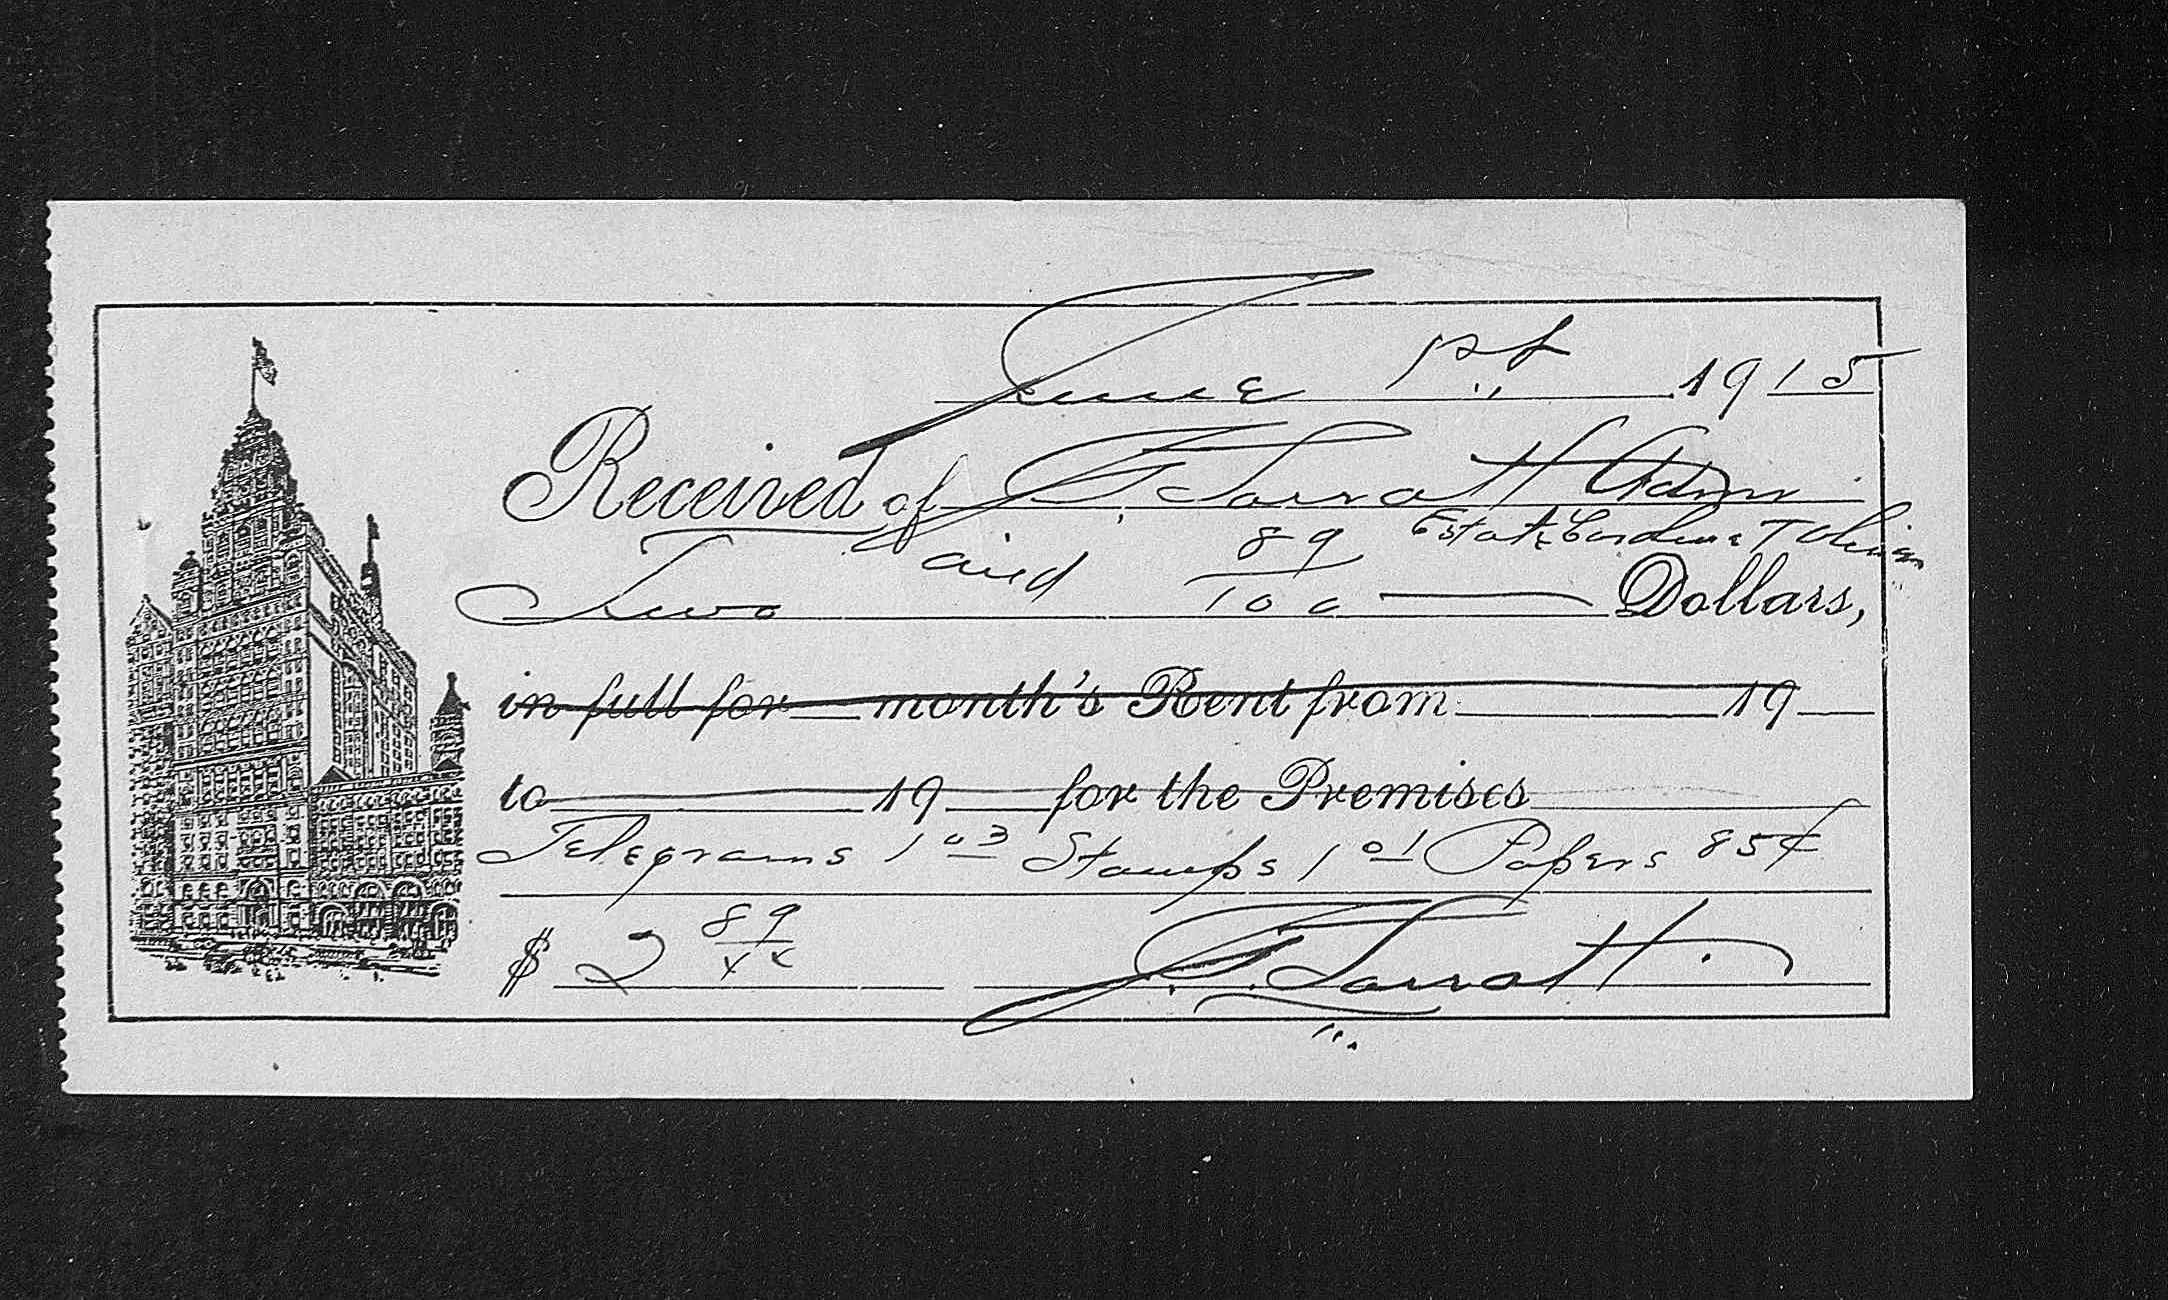 June 1st 1915
Received of J. F. Jarratt Admr
Two and 89/100 Estate Dollars,
in full for month's Rent from 19
to 19 for the Premises
Telegrams 1 03 Stamps 1 01 Papers 85¢
$ 2 89/xx J. F. Jarratt